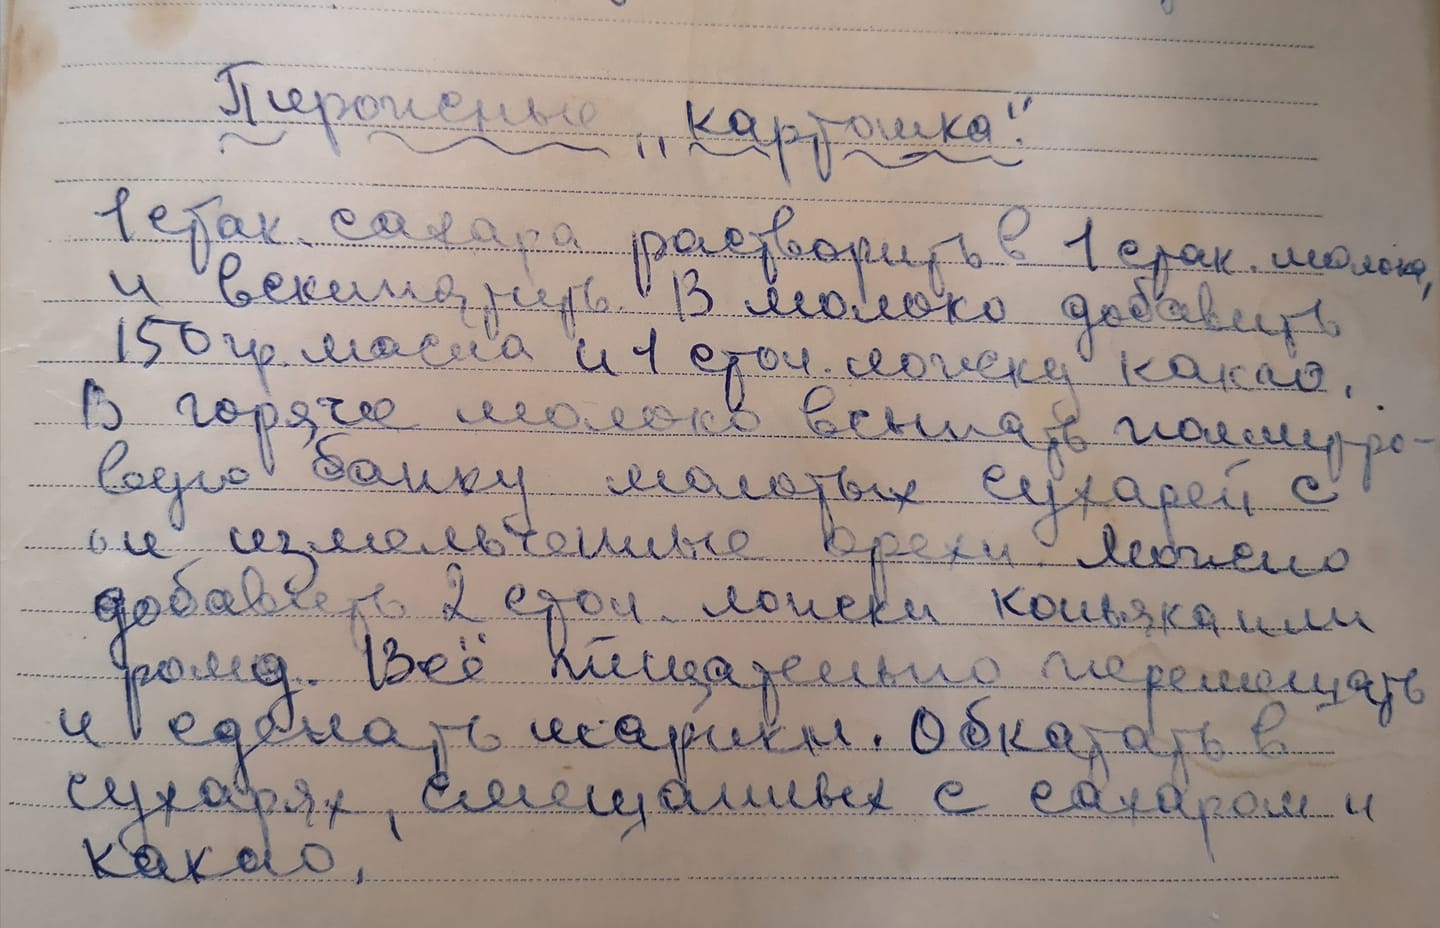 Пироженые „картошка".
1 стак. сахара растворить в 1 стак. молока,
и вскипятить. В молоко добавить
150 гр. масла и 1 стол. ложку какао.
В горяче молоко всыпать поллитро-
вую банку молотых сухарей с
и измельченные орехи. Можно
добавить 2 стол. ложки коньяка или
рома. Всё тщательно перемещать
и сделать шарики. Обкатать в
сухарях, смещанных с сахаром и
какао.